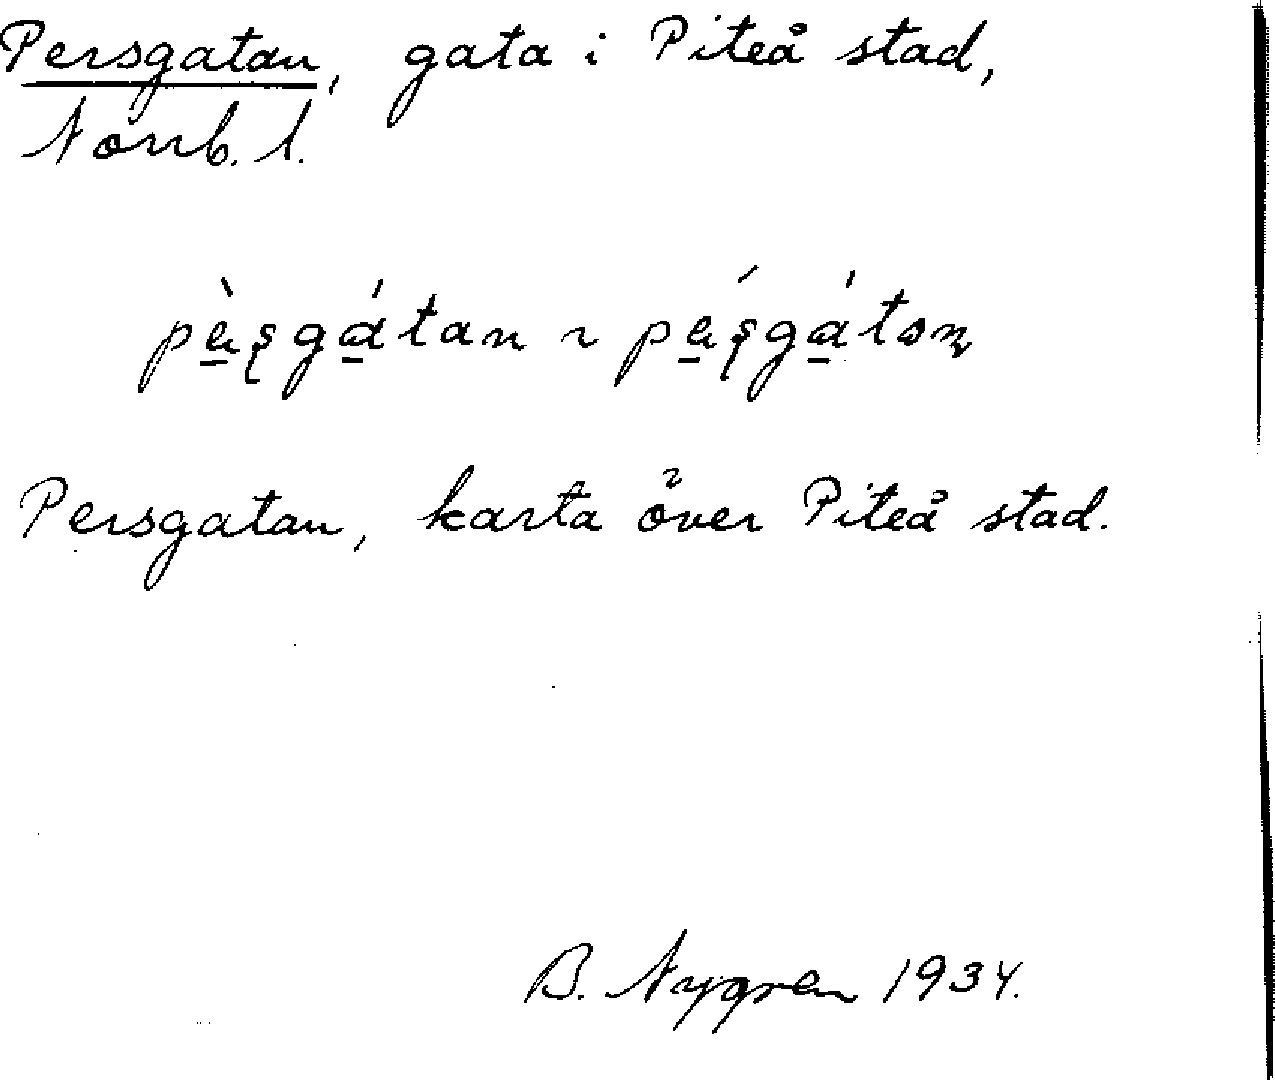 Persgatan, gata i Piteå stad,
Norrb. l.
pæ̀ʂgátan ~ pǽʂgátən
Persgatan, karta över Piteå stad.
B. Nygren 1934.